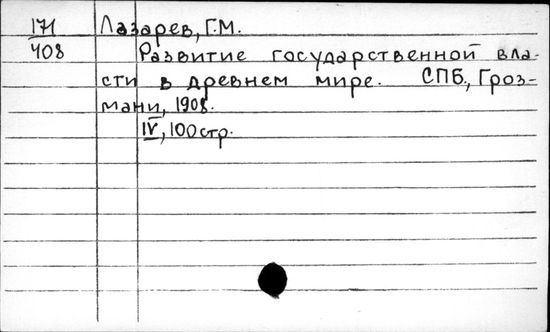 171 Лазарев, Г.М.
408 Развитие государственной вла-
сти в древнем мире. СПБ., Гроз-
мани, 1908.
IV, 100 стр.